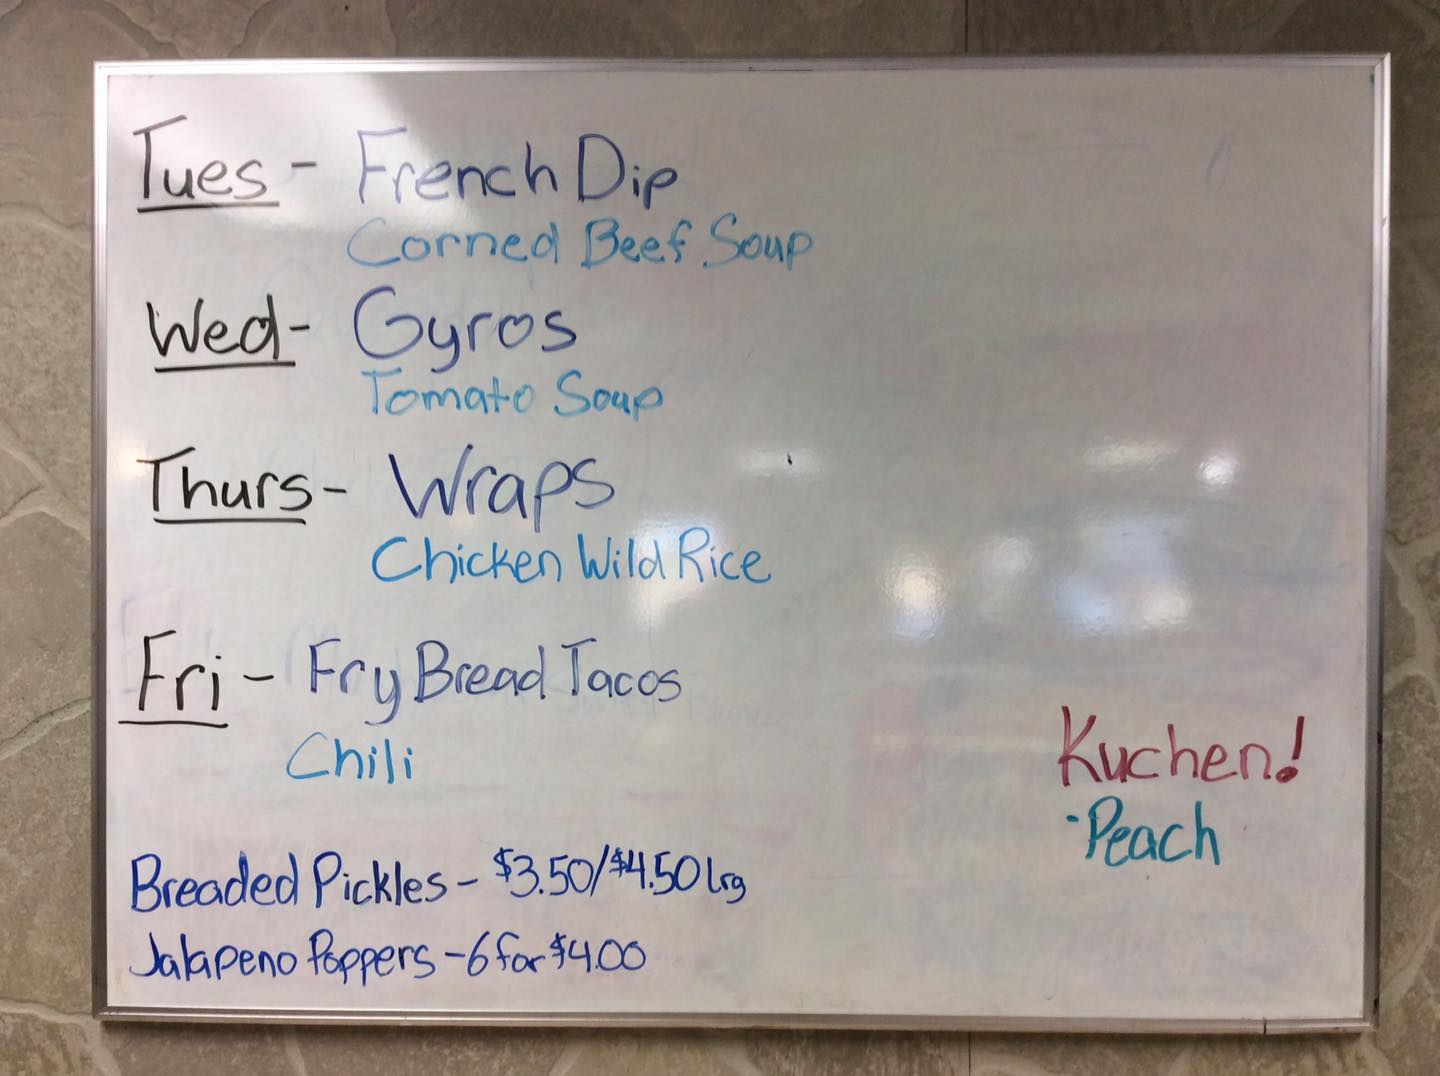 Tues - French Dip
Corned Beef Soup
Wed - Gyros
Tomato Soup
Thurs - Wraps
Chicken Wild Rice
Fri - Fry Bread Tacos
Chili
Kuchen!
- Peach
Breaded Pickles - $3.50/$4.50 lrg
Jalapeno Poppers - 6 for $4.00